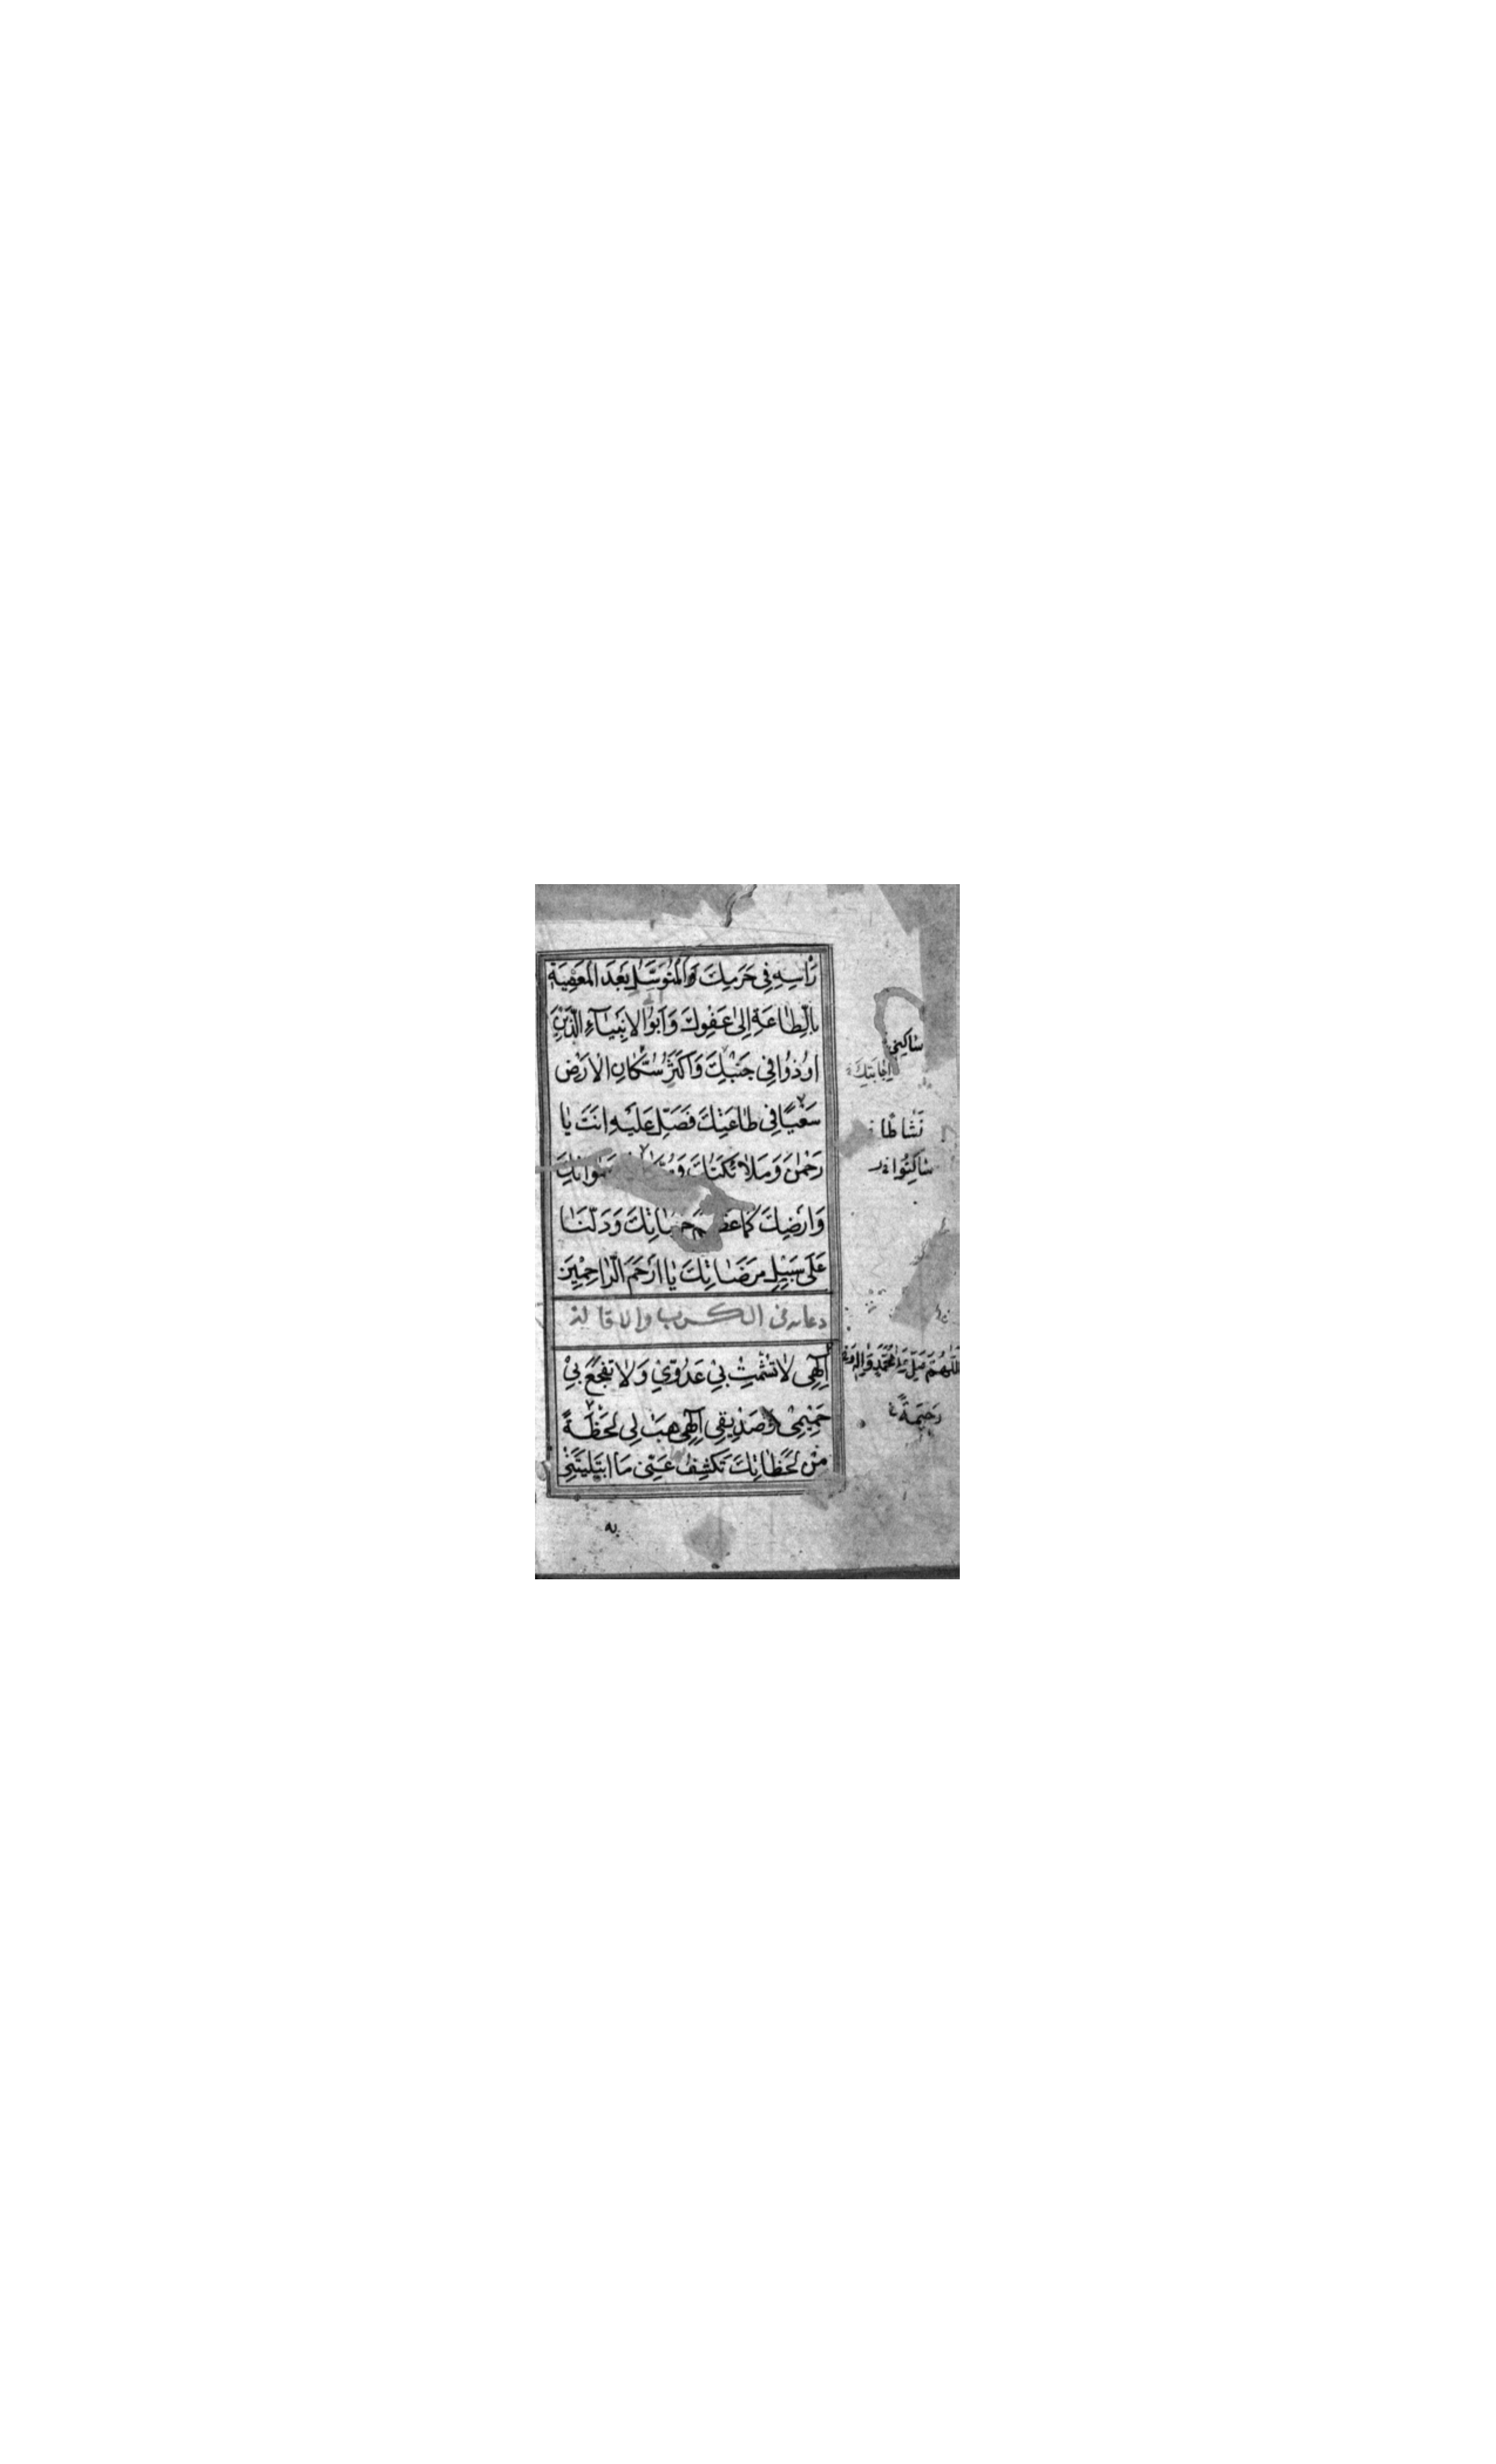 رَأْسِهِ فِي حَرَمِكَ وَالْمُتَوَسِّلِ بَعْدَ الْمَعْصِيَةِ
بِالطَّاعَةِ اِلىٰ عَفْوِكَ وَاَبُو الْاَنْبِيَآءِ الَّذِيْنَ
اُوذُوا فِي جَنْبِكَ وَاَكْثَرُ سُكَّانِ الْاَرْضِ
سَعْيًا فِي طَاعَتِكَ فَصَلِّ عَلَيْهِ اَنْتَ يَا
رَحْمٰنُ وَمَلَائِكَتُكَ
وَاَرْضِكَ كَمَا عَظَّمَ حُرُمَاتِكَ وَدَلَّنَا
عَلىٰ سَبِيْلِ مَرْضَاتِكَ يَا اَرْحَمَ الرَّاحِمِيْنَ
دعائه فى الكرب والاقالة
اِلٰهِي لَا تُشْمِتْ بِيْ عَدُوِّيْ وَلَا تُفْجِعْ بِيْ
حَمِيْمِيْ وَصَدِيْقِي اِلٰهِي هَبْ لِي لَحْظَةً
مِنْ لَحَظَاتِكَ تَكْشِفُ عَنِّي مَا ابْتَلَيْتَنِي
به
سَاكِنِي
نَشَاطًا
سَاكِنُوا
اَللّٰهُمَّ صَلِّ
رَحِيْمَةً